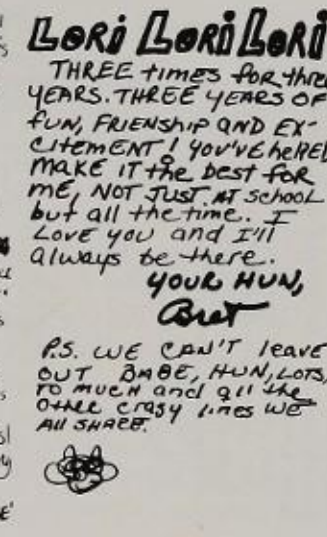 Lori Lori Lori
THREE times for three
YEARS. THREE YEARS OF
fun, FRIENShip and EX-
CITEMENT! you've helped
make IT the best for
me, NOT JUST AT school
but all the time. I
LOVE you and I'll
always be there.
YOUR HUN,
Bret
P.S. WE CAN'T leave
OUT BABE, HUN, LOTS,
TO MUCH and all the
Other crasy lines WE
All SHARE.